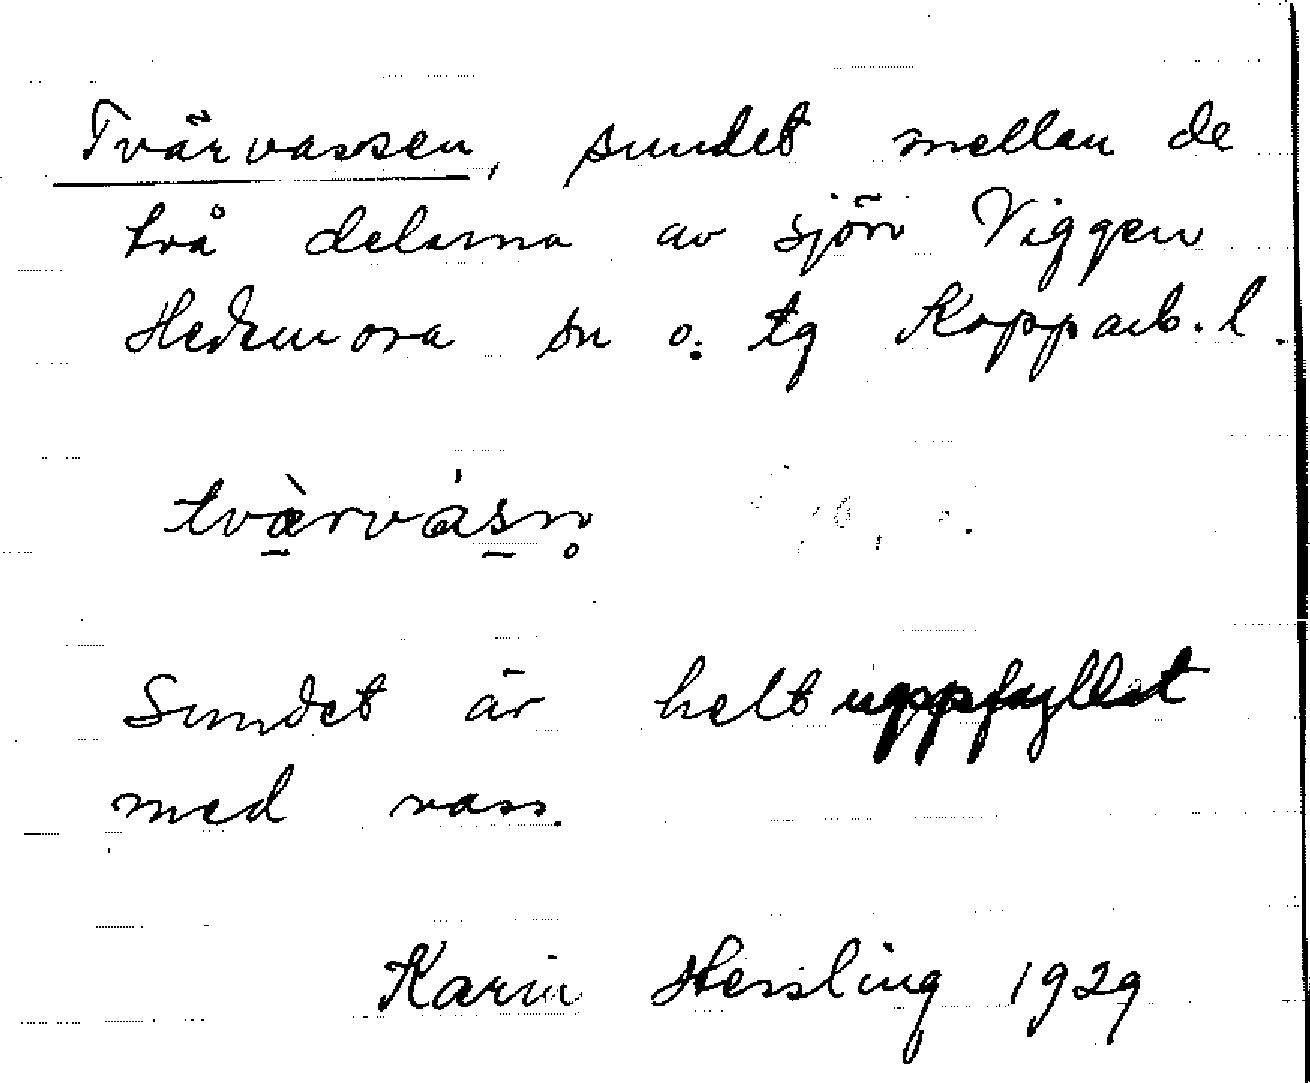 Tvärvassen, sundet mellan de
två delarna av sjön Viggen
Hedemora sn o. tg Kopparb. l.
tvæ̀rvás̠n̥
Sundet är helt uppfyllt
med vass.
Karin Hessling 1929